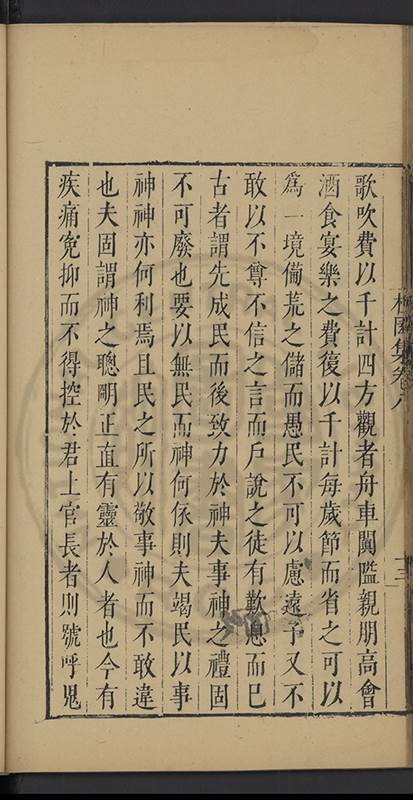 歌吹費以千計四方觀者舟車闐隘親朋高會
酒食宴樂之費復以千計每歲節而省之可以
爲一境備荒之儲而愚民不可以慮遠予又不
敢以不尊不信之言而戶說之徒有歎息而已
古者謂先成民而後致力於神夫事神之禮固
不可廢也要以無民而神何依則夫竭民以事
神神亦何利焉且民之所以敬事神而不敢違
也夫固謂神之聰明正直有靈於人者也今有
疾痛寃抑而不得控於君上官長者則號呼鬼
園集卷八
十三